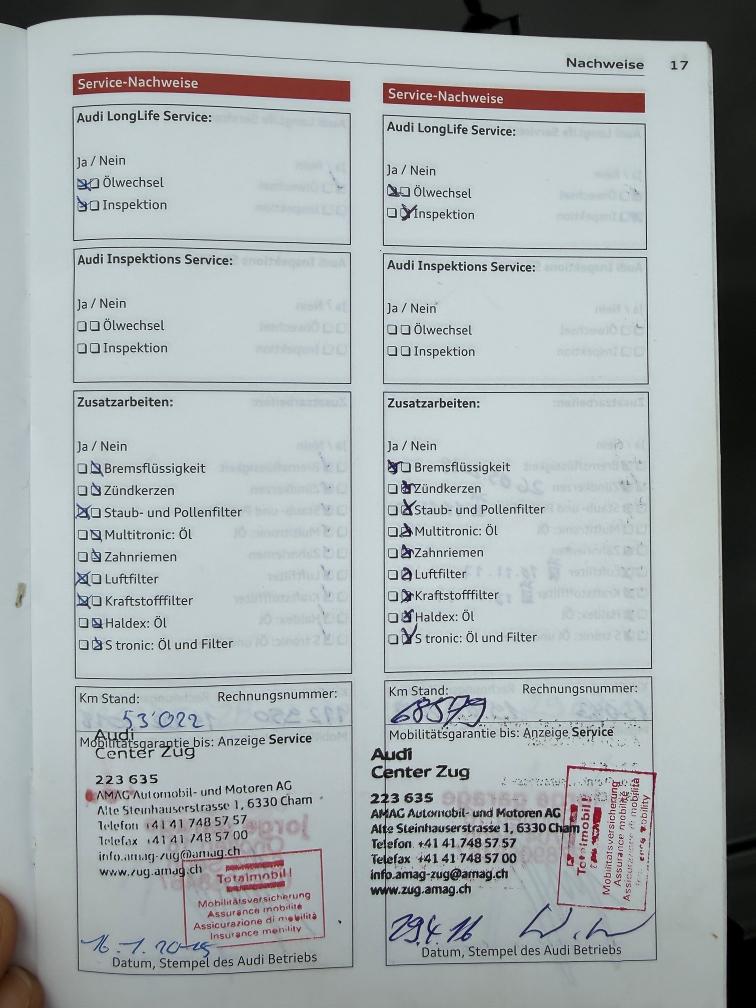 Nachweise 17
Service-Nachweise
Audi LongLife Service:
Ja / Nein
Ölwechsel
Inspektion
Audi Inspektions Service:
Ja / Nein
Ölwechsel
Inspektion
Zusatzarbeiten:
Ja / Nein
Bremsflüssigkeit
Zündkerzen
Staub- und Pollenfilter
Multitronic: Öl
Zahnriemen
Luftfilter
Kraftstofffilter
Haldex: Öl
S tronic: Öl und Filter
Km Stand: Rechnungsnummer:
53'022
Mobilitätsgarantie bis: Anzeige Service
Audi
Center Zug
223 635
AMAG Automobil- und Motoren AG
Alte Steinhauserstrasse 1, 6330 Cham
Telefon +41 41 748 57 57
Telefax +41 41 748 57 00
info.amag-zug@amag.ch
www.zug.amag.ch
Totalmobil!
Mobilitätsversicherung
Assurance mobilité
Assicurazione di mobilità
Insurance mobility
16.1.2015
Datum, Stempel des Audi Betriebs
Service-Nachweise
Audi LongLife Service:
Ja / Nein
Ölwechsel
Inspektion
Audi Inspektions Service:
Ja / Nein
Ölwechsel
Inspektion
Zusatzarbeiten:
Ja / Nein
Bremsflüssigkeit
Zündkerzen
Staub- und Pollenfilter
Multitronic: Öl
Zahnriemen
Luftfilter
Kraftstofffilter
Haldex: Öl
S tronic: Öl und Filter
Km Stand: Rechnungsnummer:
68579
Mobilitätsgarantie bis: Anzeige Service
Audi
Center Zug
223 635
AMAG Automobil- und Motoren AG
Alte Steinhauserstrasse 1, 6330 Cham
Telefon +41 41 748 57 57
Telefax +41 41 748 57 00
info.amag-zug@amag.ch
www.zug.amag.ch
Totalmobil!
Mobilitätsversicherung
Assurance mobilité
Assicurazione di mobilità
Insurance mobility
29.4.16
Datum, Stempel des Audi Betriebs